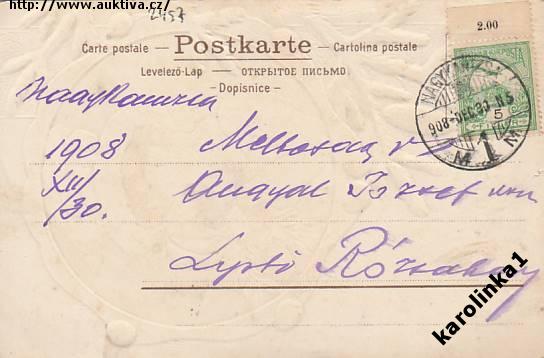 http://www.auktiva.cz/
2457
2.00
Carte postale — Postkarte — Cartolina postale
Levelező-Lap — ОТКРЫТОЕ ПИСЬМО
- Dopisnice -
NAGYKANIZSA
908 DEC. 30 N5
M 1 M
5
Nagykanizsa
1908
XII/
30.
József
Liptó Rózsahegy
karolinka1